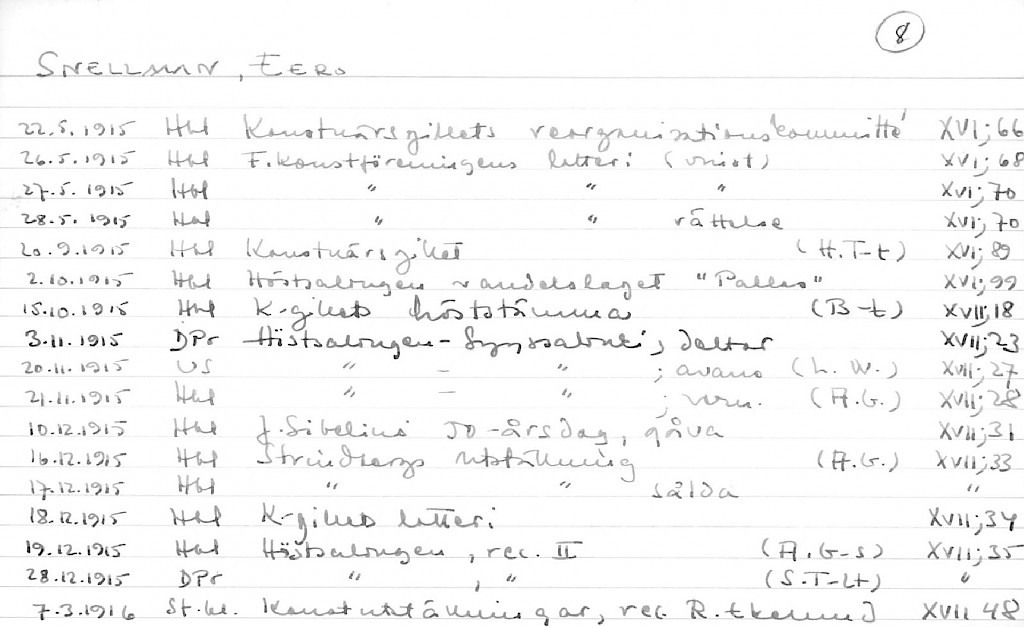 8
SNELLMAN, EERO
22.5.1915 Hbl Konstnärsgillets reorganisationskommitté XVI;66
26.5.1915 Hbl F.konstföreningens lotteri (vinst) XVI;68
27.5.1915 Hbl " " " XVI;70
28.5.1915 Hbl " " rättelse XVI;70
20.9.1915 Hbl Konstnärsgillet (H.T-t) XVI;89
2.10.1915 Hbl Höstsalongen vandelslaget "Pallas" XVI;99
15.10.1915 Hbl K-gillets höststämma (B-t) XVII;18
3.11.1915 DPr Höstsalongen - Syyssalonki; deltar XVII;23
20.11.1915 US " - " ; avano (L.W.) XVII;27
21.11.1915 Hbl " - " ; vern. (A.G.) XVII;28
10.12.1915 Hbl J.Sibelius 50-årsdag, gåva XVII;31
16.12.1915 Hbl Strindbergs utställning (A.G.) XVII;33
17.12.1915 Hbl " " sålda "
18.12.1915 Hbl K-gillets lotteri XVII;34
19.12.1915 Hbl Höstsalongen, rec. II (A.G-s) XVII;35
28.12.1915 DPr " , " (S.T-lt) "
7.3.1916 St.bl. Konstutställningar, rec. R.Ekelund XVII 48